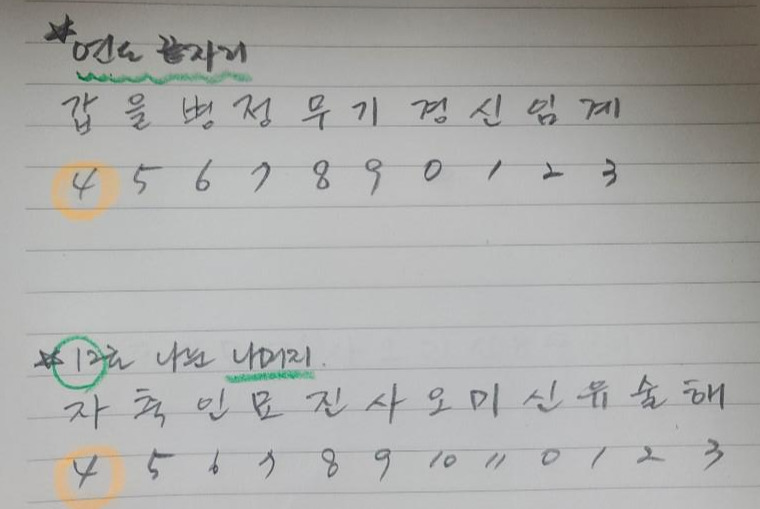 * 연도 끝자리
갑 을 병 정 무 기 경 신 임 계
4 5 6 7 8 9 0 1 2 3
* 12로 나눈 나머지.
자 축 인 묘 진 사 오 미 신 유 술 해
4 5 6 7 8 9 10 11 0 1 2 3